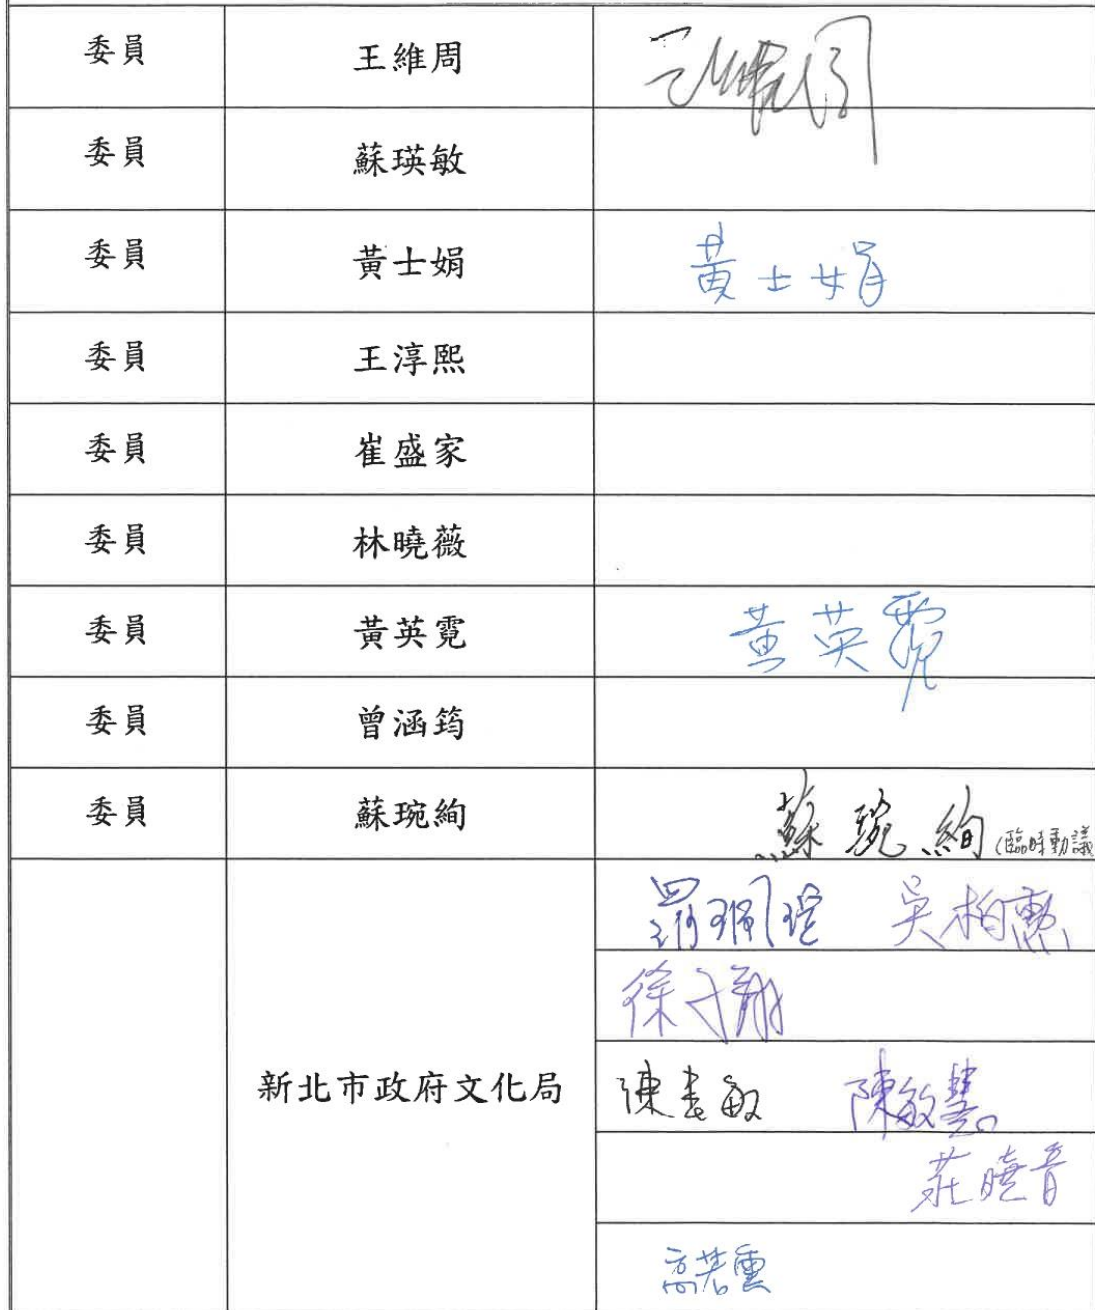 委員 王維周 王維周
委員 蘇瑛敏
委員 黃士娟 黃士娟
委員 王淳熙
委員 崔盛家
委員 林曉薇
委員 黃英霓 黃英霓
委員 曾涵筠
委員 蘇琬絢 蘇琬絢(臨時動議
羅珮瑄 吳柏勳
徐子翔
新北市政府文化局 陳春敏 陳敏慧
莊曉音
高若雲